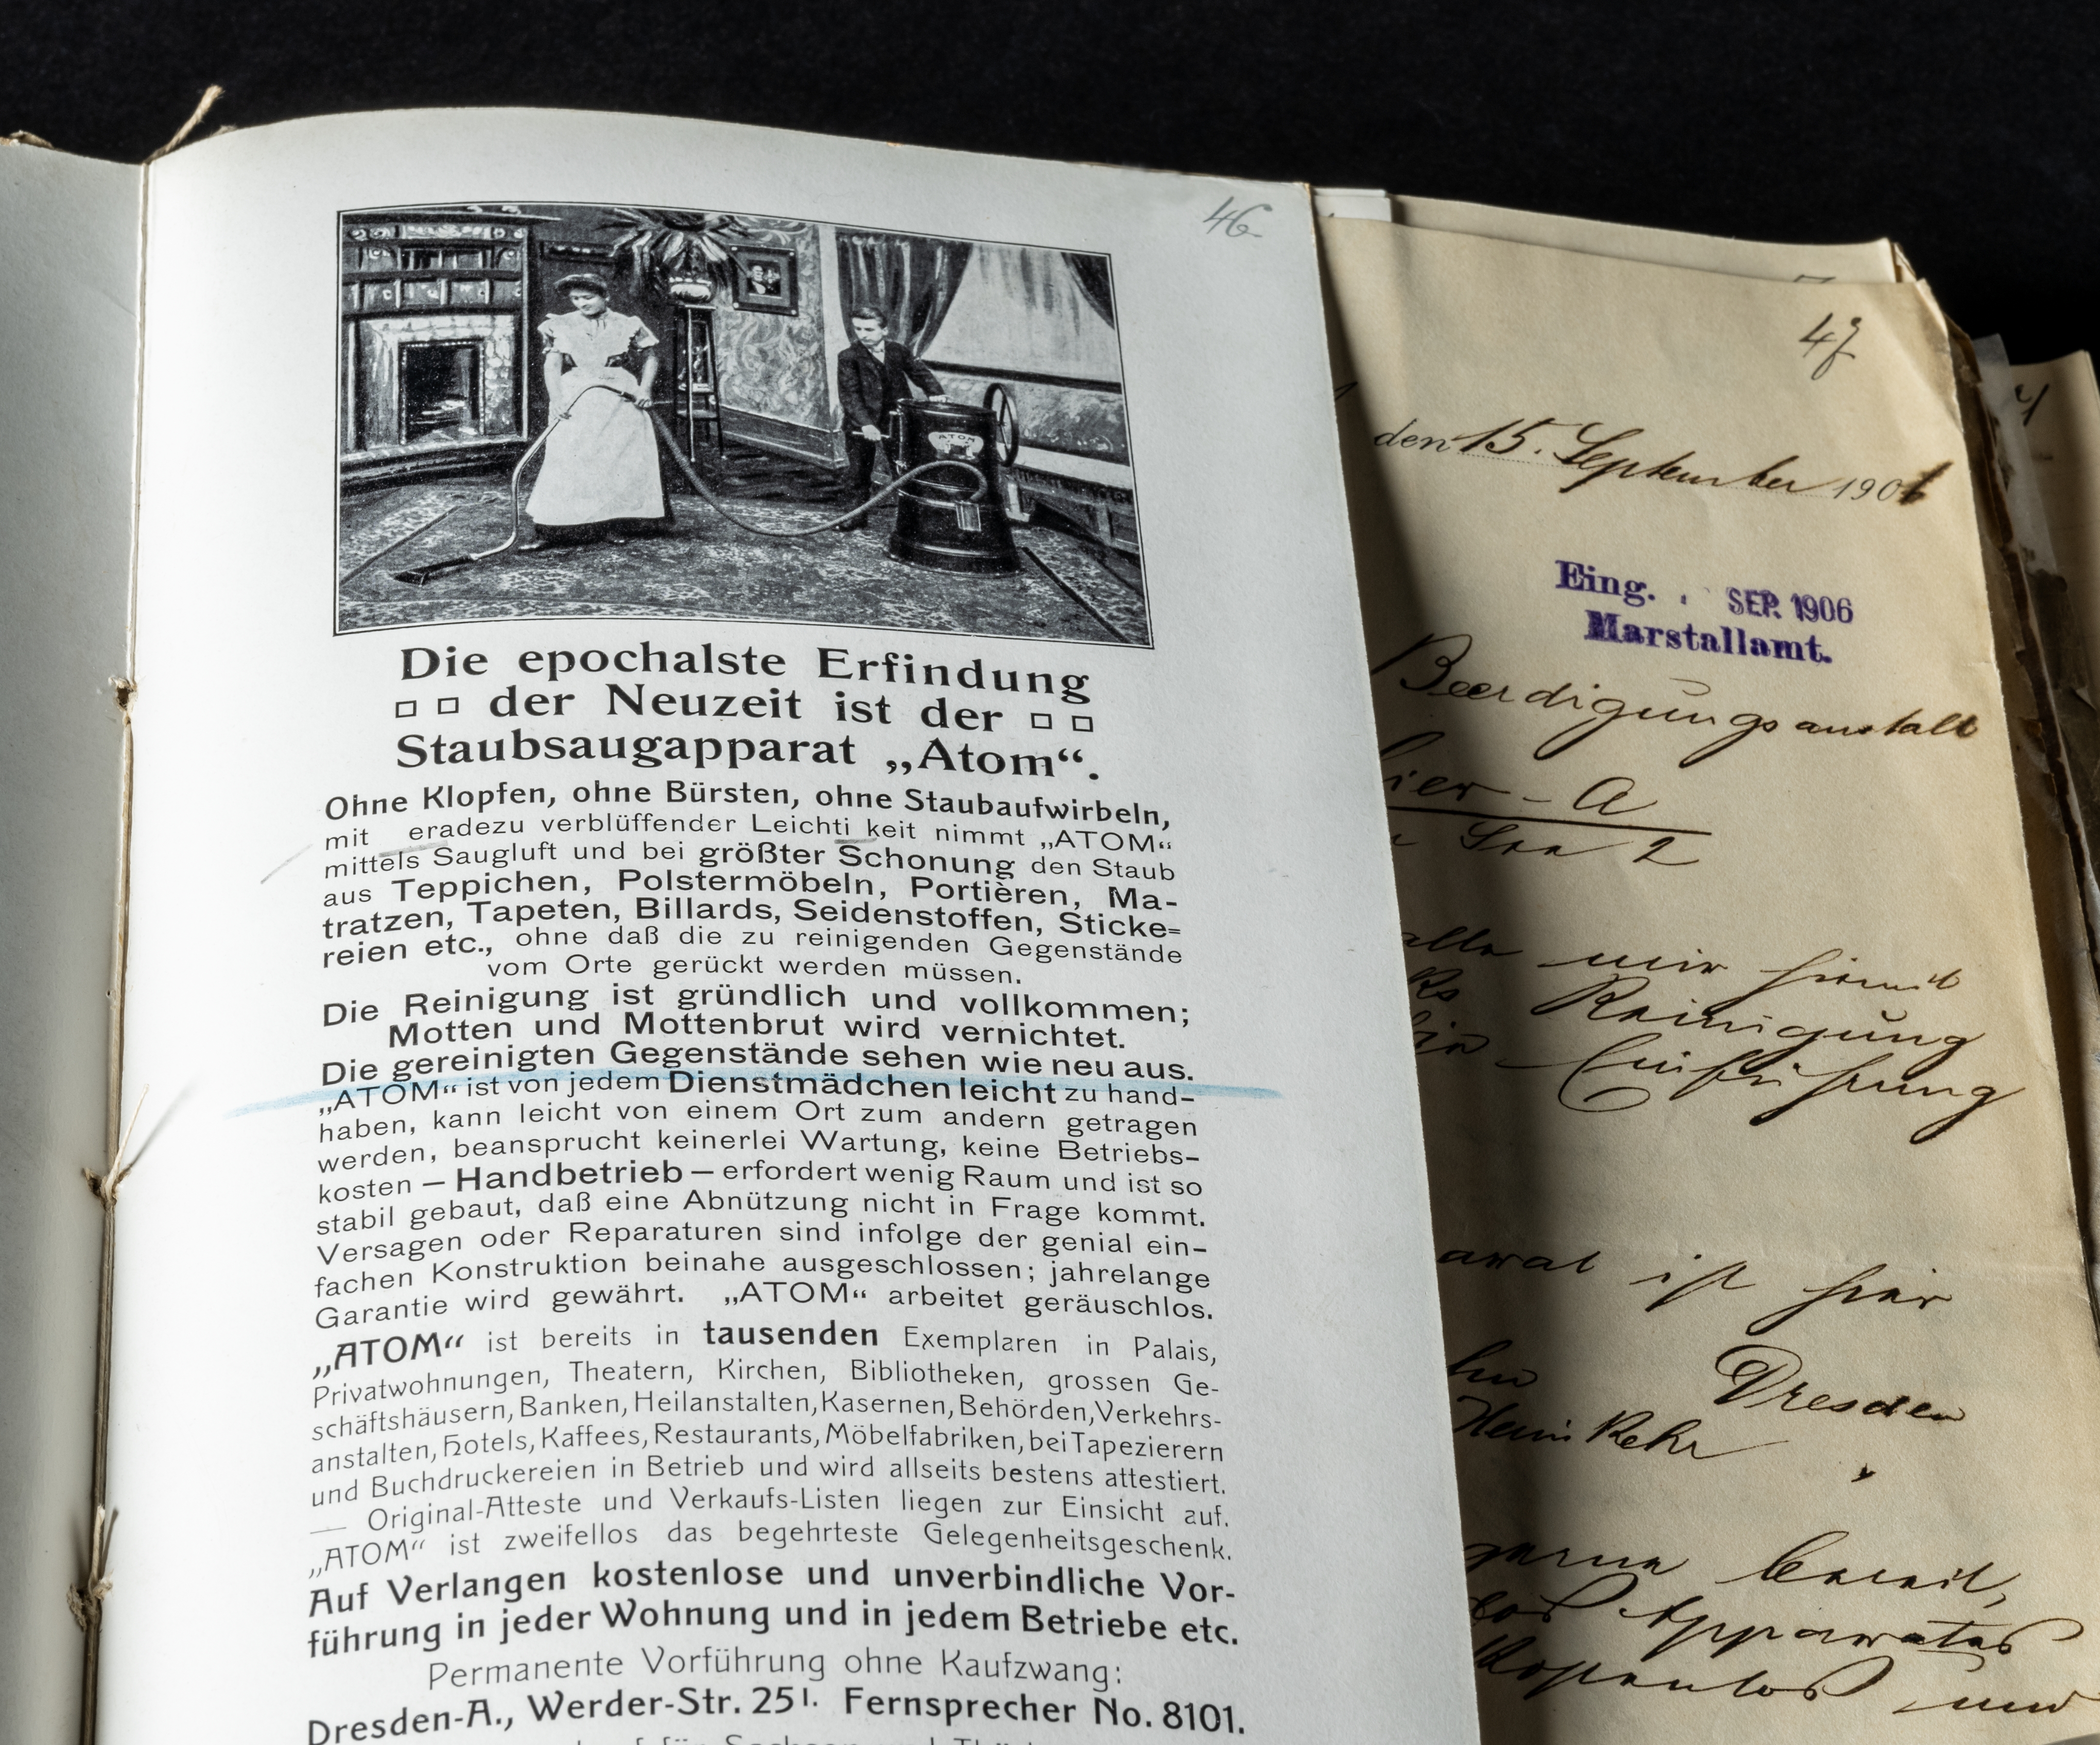 46
ATOM
Die epochalste Erfindung
der Neuzeit ist der
Staubsaugapparat „Atom“.
Ohne Klopfen, ohne Bürsten, ohne Staubaufwirbeln,
mit eradezu verblüffender Leichti keit nimmt „ATOM“
mittels Saugluft und bei größter Schonung den Staub
aus Teppichen, Polstermöbeln, Portièren, Ma-
tratzen, Tapeten, Billards, Seidenstoffen, Sticke=
reien etc., ohne daß die zu reinigenden Gegenstände
vom Orte gerückt werden müssen.
Die Reinigung ist gründlich und vollkommen;
Motten und Mottenbrut wird vernichtet.
Die gereinigten Gegenstände sehen wie neu aus.
„ATOM“ ist von jedem Dienstmädchen leicht zu hand-
haben, kann leicht von einem Ort zum andern getragen
werden, beansprucht keinerlei Wartung, keine Betriebs-
kosten — Handbetrieb — erfordert wenig Raum und ist so
stabil gebaut, daß eine Abnützung nicht in Frage kommt.
Versagen oder Reparaturen sind infolge der genial ein-
fachen Konstruktion beinahe ausgeschlossen; jahrelange
Garantie wird gewährt. „ATOM“ arbeitet geräuschlos.
„ATOM“ ist bereits in tausenden Exemplaren in Palais,
Privatwohnungen, Theatern, Kirchen, Bibliotheken, grossen Ge-
schäftshäusern, Banken, Heilanstalten, Kasernen, Behörden, Verkehrs-
anstalten, Hotels, Kaffees, Restaurants, Möbelfabriken, bei Tapezierern
und Buchdruckereien in Betrieb und wird allseits bestens attestiert.
— Original-Atteste und Verkaufs-Listen liegen zur Einsicht auf.
„ATOM“ ist zweifellos das begehrteste Gelegenheitsgeschenk.
Auf Verlangen kostenlose und unverbindliche Vor-
führung in jeder Wohnung und in jedem Betriebe etc.
Permanente Vorführung ohne Kaufzwang:
Dresden-A., Werder-Str. 25 I. Fernsprecher No. 8101.
47
den 15. September 1906
Eing. SEP. 1906
Marstallamt.
Beerdigungsanstalt
hier - A
2
mir hiermit
Reinigung
Einführung
ist hier
Dresden
gerne bereit,
Apparates
und